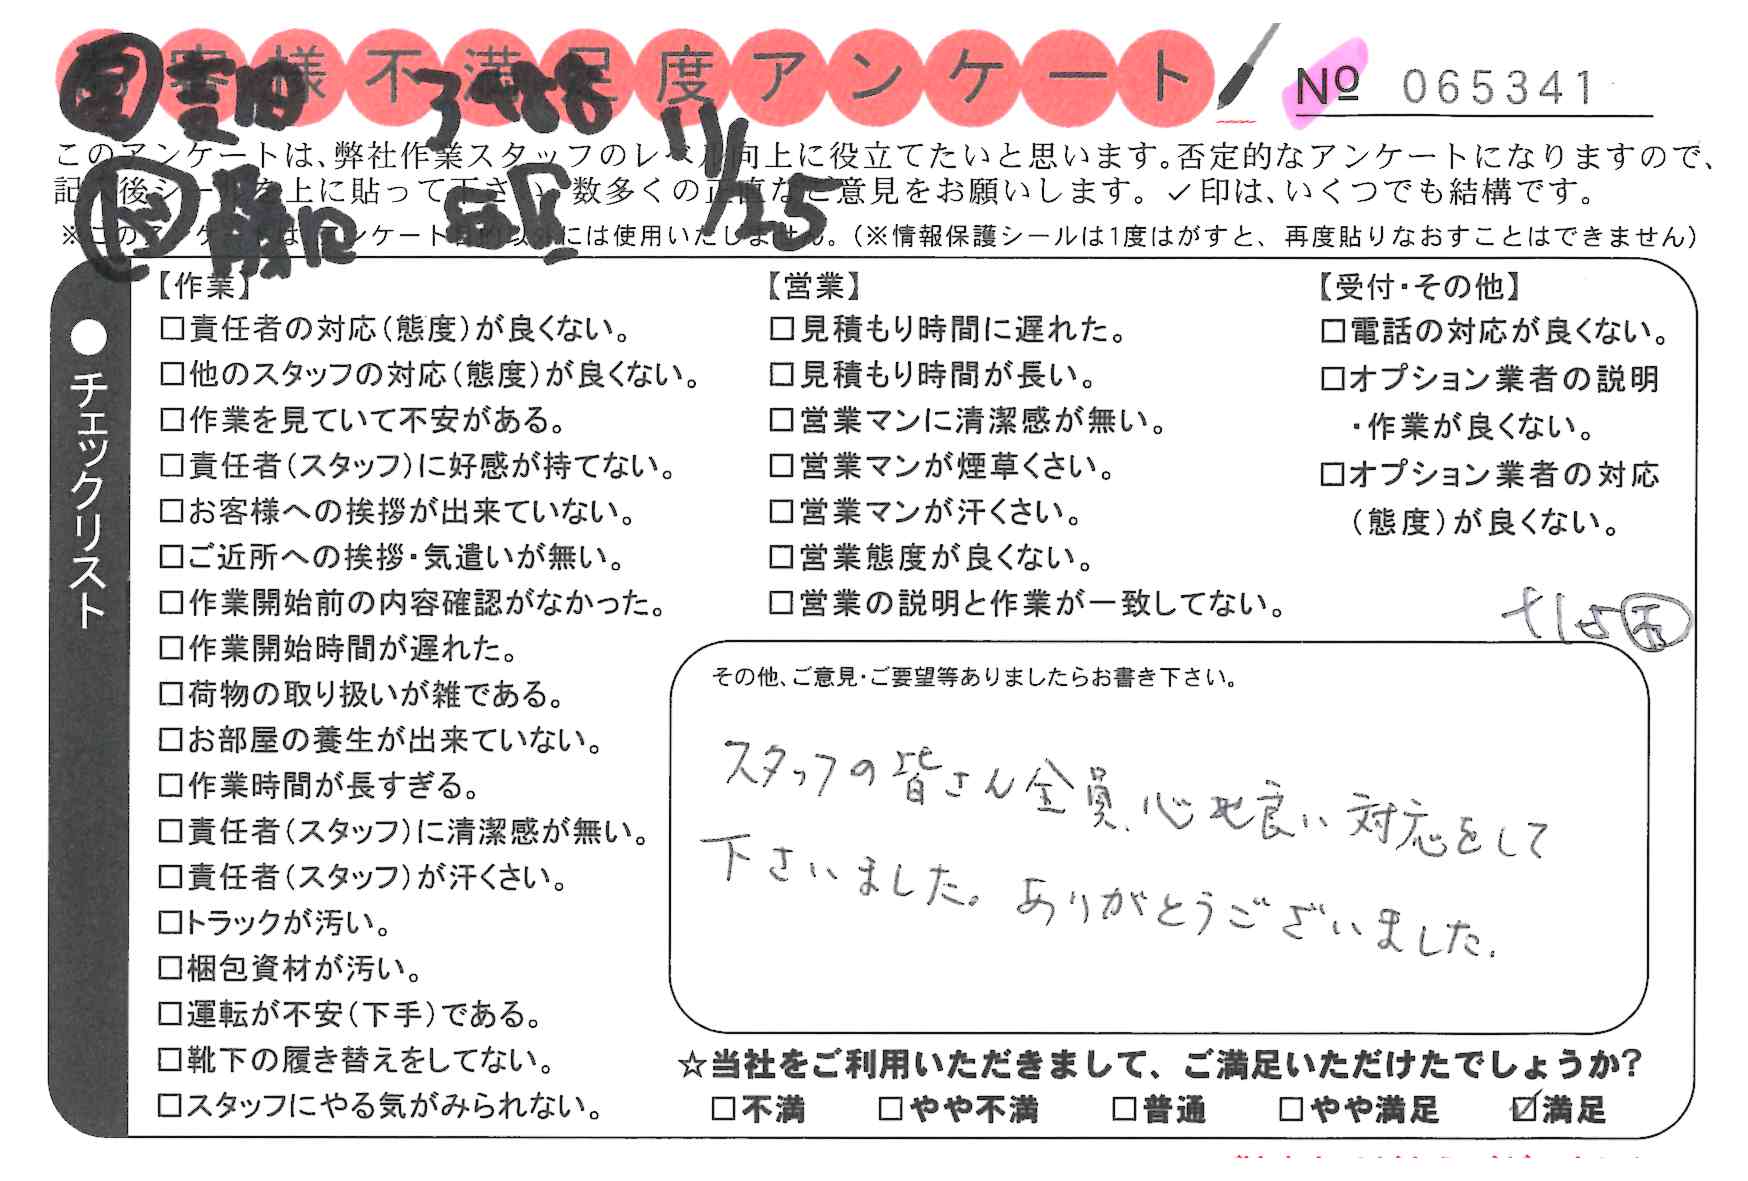 客様不満足度アンケート
№ 065341
3488 11/25
このアンケートは、弊社作業スタッフのレベル向上に役立てたいと思います。否定的なアンケートになりますので、
記入後シールを上に貼って下さい。数多くの正直なご意見をお願いします。✓印は、いくつでも結構です。
※このアンケートは、アンケート目的以外には使用いたしません。(※情報保護シールは1度はがすと、再度貼りなおすことはできません)
●チェックリスト
【作業】
□責任者の対応(態度)が良くない。
□他のスタッフの対応(態度)が良くない。
□作業を見ていて不安がある。
□責任者(スタッフ)に好感が持てない。
□お客様への挨拶が出来ていない。
□ご近所への挨拶・気遣いが無い。
□作業開始前の内容確認がなかった。
□作業開始時間が遅れた。
□荷物の取り扱いが雑である。
□お部屋の養生が出来ていない。
□作業時間が長すぎる。
□責任者(スタッフ)に清潔感が無い。
□責任者(スタッフ)が汗くさい。
□トラックが汚い。
□梱包資材が汚い。
□運転が不安(下手)である。
□靴下の履き替えをしてない。
□スタッフにやる気がみられない。
【営業】
□見積もり時間に遅れた。
□見積もり時間が長い。
□営業マンに清潔感が無い。
□営業マンが煙草くさい。
□営業マンが汗くさい。
□営業態度が良くない。
□営業の説明と作業が一致してない。
【受付・その他】
□電話の対応が良くない。
□オプション業者の説明
・作業が良くない。
□オプション業者の対応
(態度)が良くない。
その他、ご意見・ご要望等ありましたらお書き下さい。
スタッフの皆さん全員、心地良い対応をして
下さいました。ありがとうございました。
☆当社をご利用いただきまして、ご満足いただけたでしょうか?
□不満 □やや不満 □普通 □やや満足 ☑満足